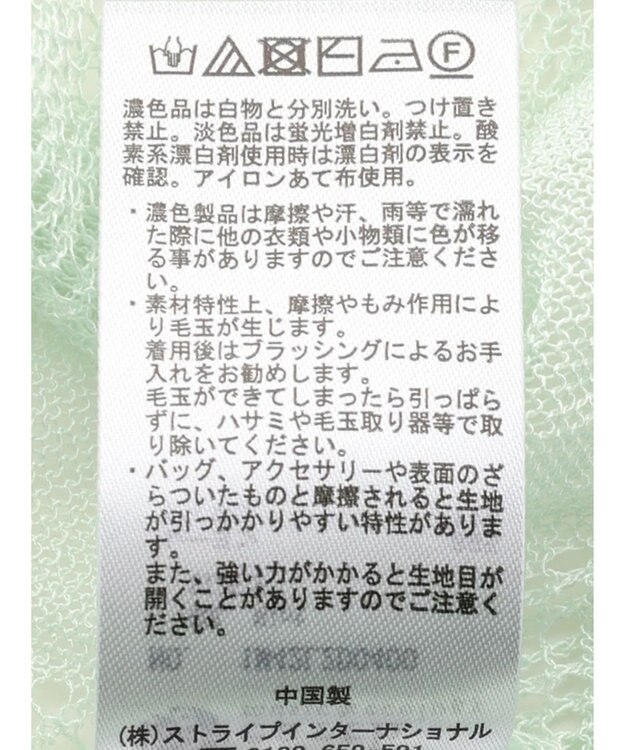 F
濃色品は白物と分別洗い。つけ置き
禁止。淡色品は蛍光増白剤禁止。酸
素系漂白剤使用時は漂白剤の表示を
確認。アイロンあて布使用。
・濃色製品は摩擦や汗、雨等で濡れ
た際に他の衣類や小物類に色が移
る事がありますのでご注意くださ
い。
・素材特性上、摩擦やもみ作用によ
り毛玉が生じます。
着用後はブラッシングによるお手
入れをお勧めします。
毛玉ができてしまったら引っぱら
ずに、ハサミや毛玉取り器等で取
り除いてください。
・バッグ、アクセサリーや表面のざ
らついたものと摩擦されると生地
が引っかかりやすい特性がありま
す。
また、強い力がかかると生地目が
開くことがありますのでご注意く
ださい。
中国製
(株)ストライプインターナショナル